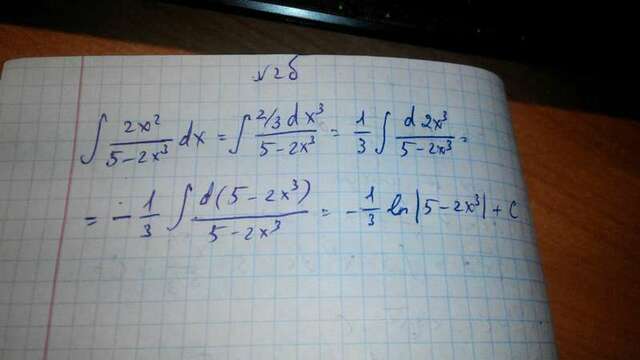 √2б
∫ 2x²/(5-2x³) dx = ∫ 2/3 dx³/(5-2x³) = 1/3 ∫ d 2x³/(5-2x³) =
= - 1/3 ∫ d(5-2x³)/(5-2x³) = - 1/3 ln|5-2x³| + C